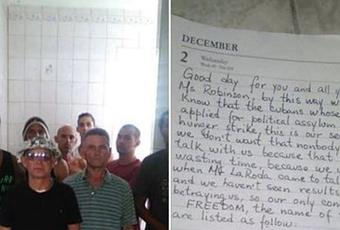 DECEMBER
2 Wednesday
Good day for you and all y
Ms Robinson, by this way w
Know that the cubans whose
applied for political assylum
hunger strike, this is our se
we don't want that nobody
talk with us because that
wasting time, because we w
when Mr LaRoda came to tal
and we haven't seen results
betraying us, so our only con
FREEDOM, the name of
are listed as follow: